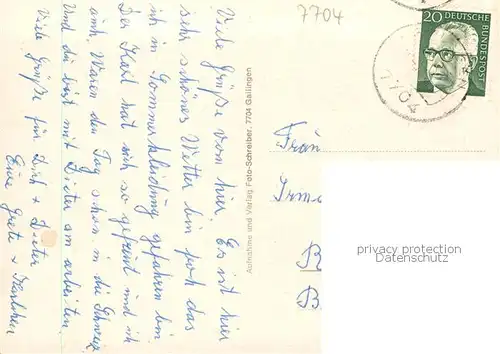 Viele Grüße von hier. Es ist hier
sehr schönes Wetter bin froh das
ich in Sommerkleidung gefahren bin.
Der Karl hat sich so gefreut und ich
auch. Waren den Tag schon in die Schweiz
Und du bist mit Dieter am arbeiten.
Viele Grüße für Dich + Dieter
Eure Grete +
Aufnahme und Verlag Foto-Schreiber, 7704 Gailingen
7704
20 DEUTSCHE
BUNDESPOST
7704
Frau
Irm
B
B
privacy protection
Datenschutz